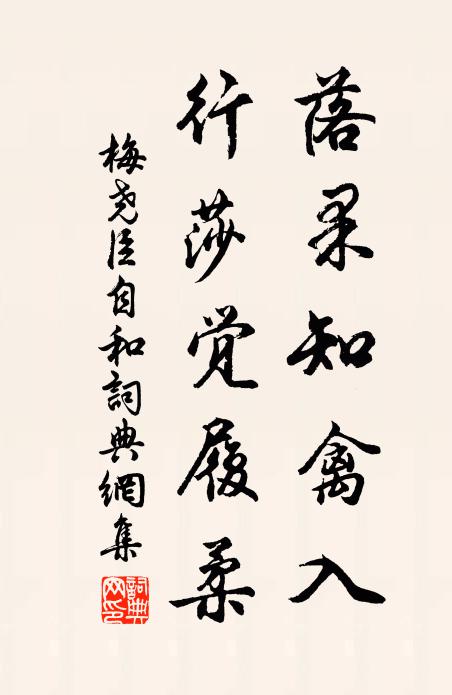 落果知禽入
行莎觉履柔
梅尧臣自和詞典網集
詞典网印